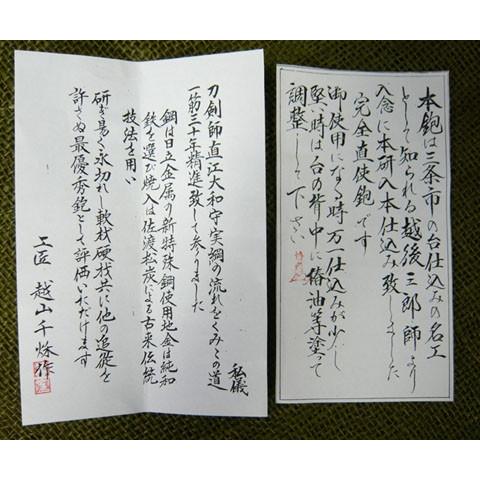 本鉋は三条市の台仕込みの名工
として知られる越後三郎師より
入念に本研入本仕込み致しました
完全直使鉋です
御使用になる時万一仕込みが少し
堅い時は台の背中に椿油等塗って
調整して下さい
私儀
刀剣師直江大和守実綱の流れをくみこの道
一筋三十年精進致して参りました
鋼は日立金属の新特殊鋼使用地金は純和
鉄を選び焼入は佐渡松炭による古来伝統
技法を用い
研ぎ易く永切れし軟材硬材共に他の追蹤を
許さぬ最優秀鉋として評価いただけます
工匠 越山千秌作